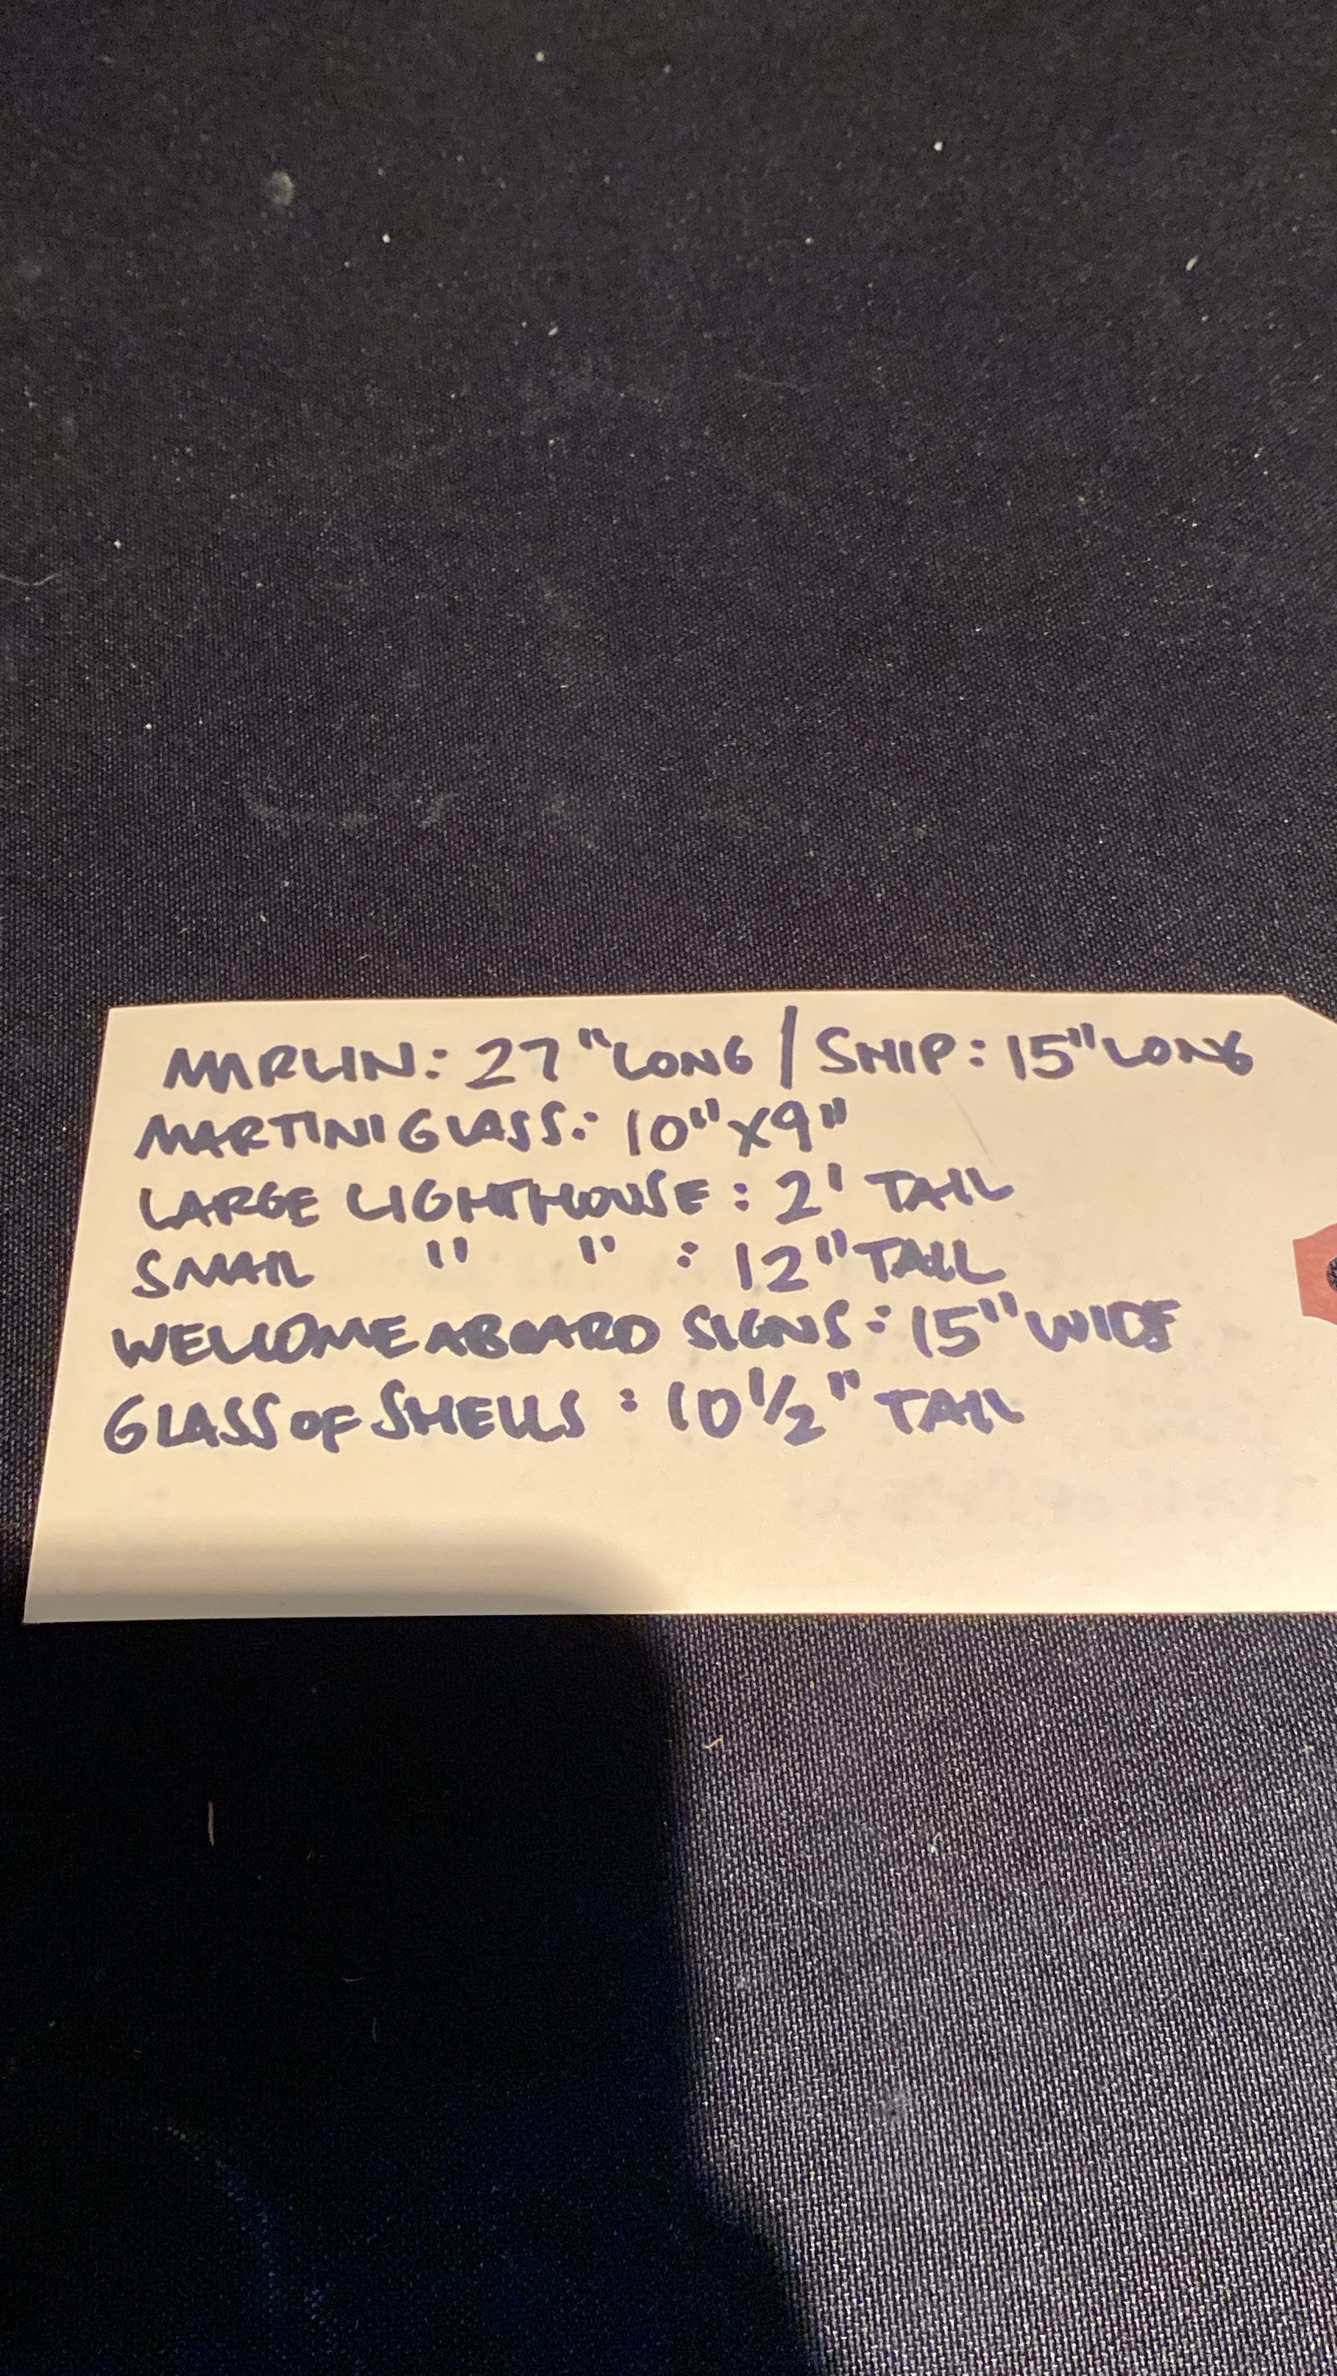 MARLIN: 27" LONG / SHIP: 15" LONG
MARTINI GLASS: 10" X 9"
LARGE LIGHTHOUSE: 2' TALL
SMALL " " : 12" TALL
WELCOME ABOARD SIGNS: 15" WIDE
GLASS OF SHELLS: 10 1/2" TALL